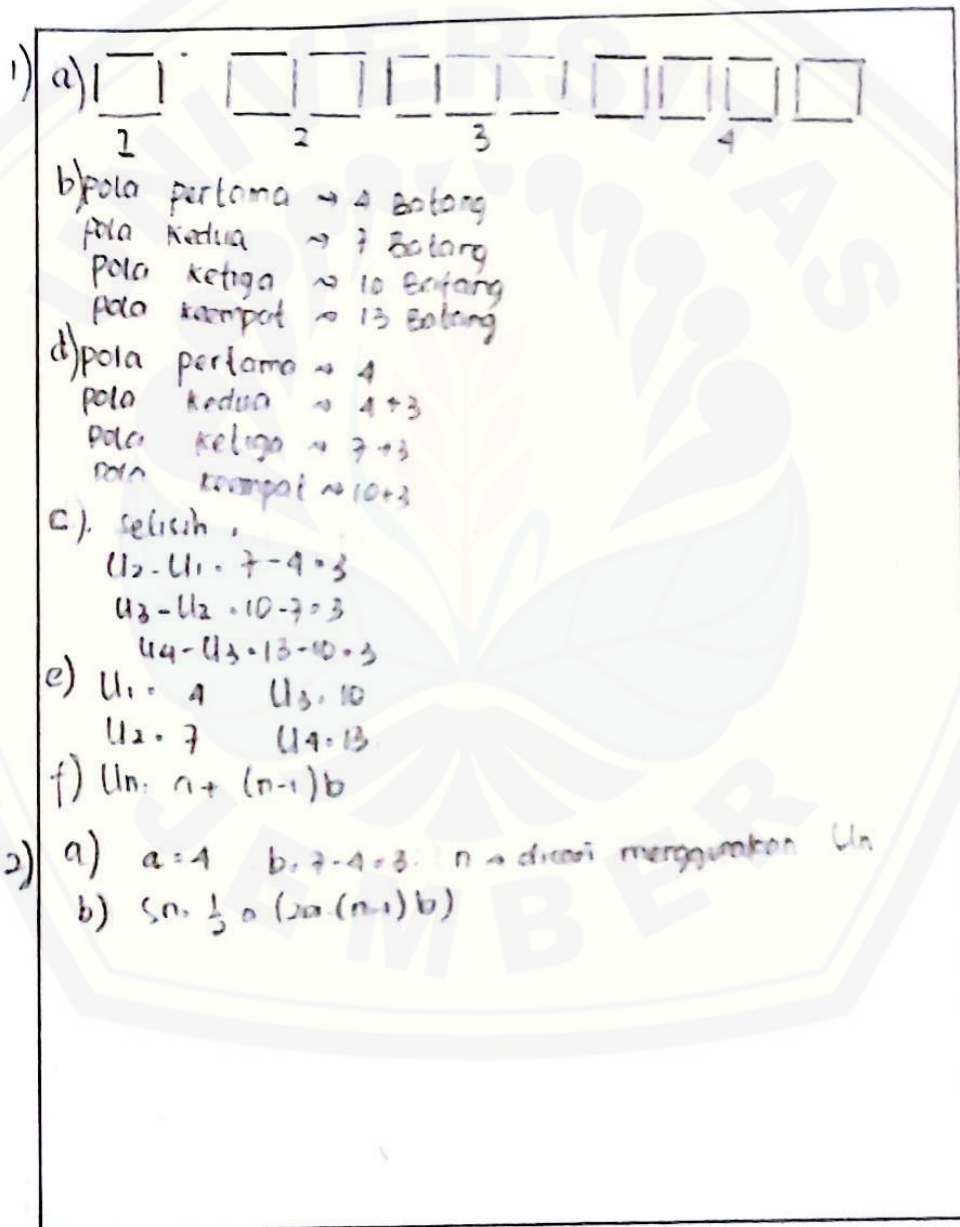 1) a)
1 2 3 4
b) pola pertama → 4 Batang
pola kedua → 7 Batang
Pola ketiga → 10 Batang
pola keempat → 13 Batang
d) pola pertama → 4
pola kedua → 4+3
pola ketiga → 7+3
pola keempat → 10+3
c). selisih
U2 - U1 = 7-4=3
U3 - U2 = 10-7=3
U4 - U3 = 13-10=3
e) U1 = 4 U3 = 10
U2 = 7 U4 = 13
f) Un = a + (n-1)b
2) a) a = 4 b = 7-4=3 n → dicari menggunakan Un
b) Sn = n (2a (n-1) b)
UNIVERSITAS
JEMBER